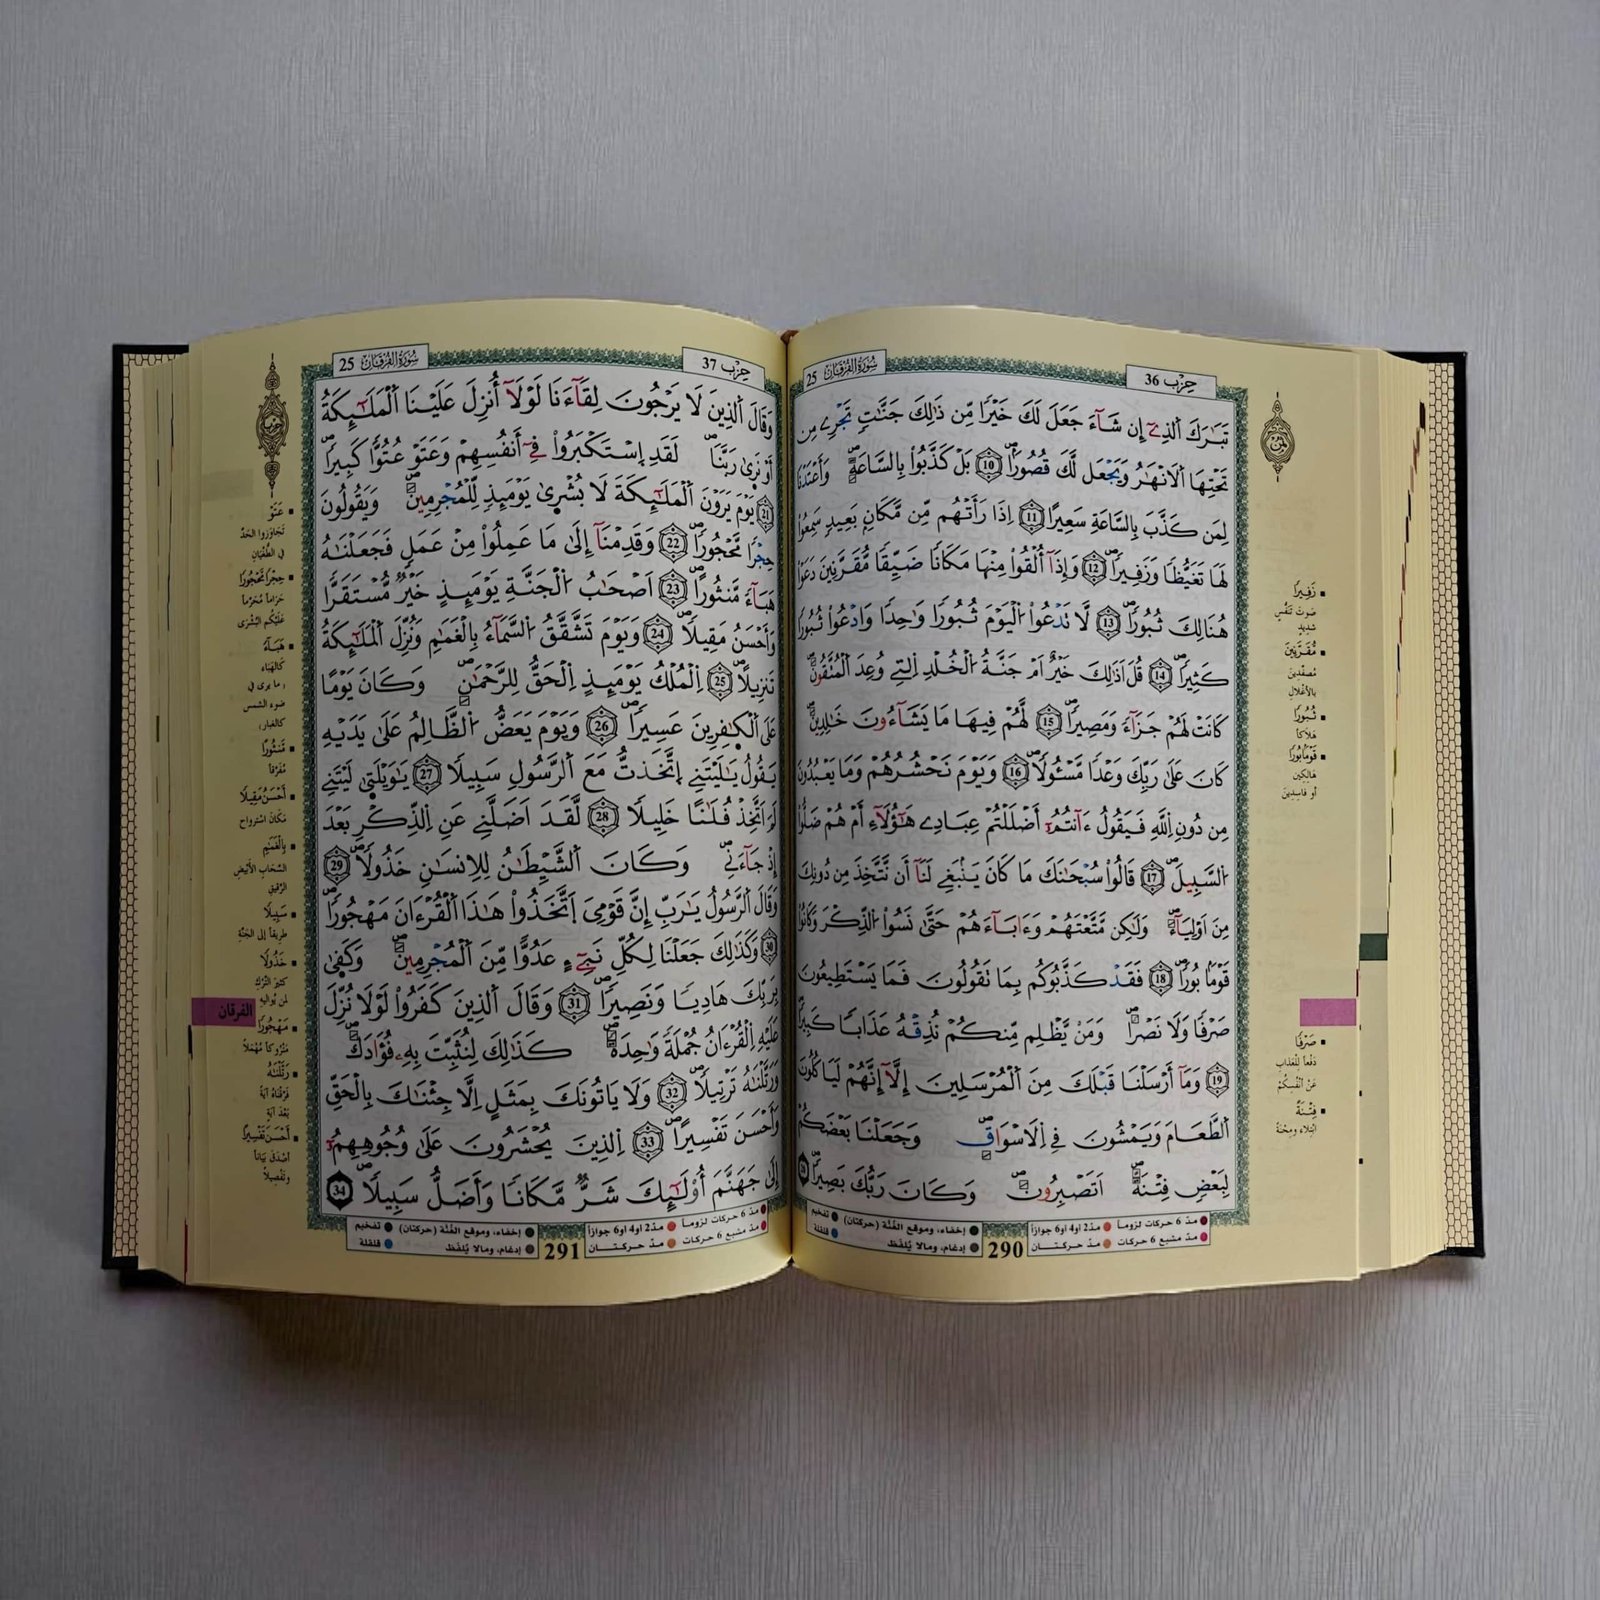 سُورَةُ الفُرْقَان 25
حِزْب 36
تَبَٰرَكَ ٱلذِےٓ إِن شَآءَ جَعَلَ لَكَ خَيْرٗا مِّن ذَٰلِكَ جَنَّٰتٖ تَجْرِے مِن
تَحْتِهَا اَ۬لَانْهَٰرُ وَيَجْعَل لَّكَ قُصُوراٗۖ 10 بَلْ كَذَّبُواْ بِالسَّاعَةِۖ وَأَعْتَدْنَا
لِمَن كَذَّبَ بِالسَّاعَةِ سَعِيراًۖ 11 اِذَا رَأَتْهُم مِّن مَّكَانِۢ بَعِيدٖ سَمِعُواْ
لَهَا تَغَيُّظاٗ وَزَفِيراٗۖ 12 وَإِذَآ أُلْقُواْ مِنْهَا مَكَاناٗ ضَيِّقاٗ مُّقَرَّنِينَ دَعَوْاْ
هُنَالِكَ ثُبُوراٗۖ 13 لَّا تَدْعُواْ اُ۬لْيَوْمَ ثُبُوراٗ وَٰحِداٗ وَادْعُواْ ثُبُوراٗ
كَثِيراٗۖ 14 قُلَ اَذَٰلِكَ خَيْرٌ اَمْ جَنَّةُ اُ۬لْخُلْدِ اِ۬لتِے وُعِدَ اَ۬لْمُتَّقُونَۖ
كَانَتْ لَهُمْ جَزَآءٗ وَمَصِيراٗۖ 15 لَّهُمْ فِيهَا مَا يَشَآءُونَ خَٰلِدِينَۖ
كَانَ عَلَىٰ رَبِّكَ وَعْداٗ مَّسْـُٔولاٗۖ 16 وَيَوْمَ نَحْشُرُهُمْ وَمَا يَعْبُدُونَ
مِن دُونِ اِ۬للَّهِ فَيَقُولُ ءَآنتُمُۥٓ أَضْلَلْتُمْ عِبَادِے هَٰٓؤُلَآءِ أَمْ هُمْ ضَلُّواْ
اُ۬لسَّبِيلَۖ 17 قَالُواْ سُبْحَٰنَكَ مَا كَانَ يَنۢبَغِے لَنَآ أَن نَّتَّخِذَ مِن دُونِكَ
مِنَ اَوْلِيَآءَۖ وَلَٰكِن مَّتَّعْتَهُمْ وَءَابَآءَهُمْ حَتَّىٰ نَسُواْ اُ۬لذِّكْرَ وَكَانُواْ
قَوْماَۢ بُوراٗۖ 18 فَقَدْ كَذَّبُوكُم بِمَا تَقُولُونَ فَمَا يَسْتَطِيعُونَ
صَرْفاٗ وَلَا نَصْراٗۖ وَمَنْ يَّظْلِم مِّنكُمْ نُذِقْهُ عَذَاباٗ كَبِيراٗۖ
19 وَمَآ أَرْسَلْنَا قَبْلَكَ مِنَ اَ۬لْمُرْسَلِينَ إِلَّآ إِنَّهُمْ لَيَاكُلُونَ
اَ۬لطَّعَامَ وَيَمْشُونَ فِے اِ۬لَاسْوَاقِۖ وَجَعَلْنَا بَعْضَكُمْ
لِبَعْضٖ فِتْنَةًۖ اَتَصْبِرُونَۖ وَكَانَ رَبُّكَ بَصِيراٗۖ 20
زَفِيرًا
صَوتَ تَنَفُّسٍ
شَدِيدٍ
مُّقَرَّنِينَ
مُصَفَّدِينَ
بِالأغْلَالِ
ثُبُورًا
هَلَاكًا
قَوْمًا بُورًا
هَالِكِين
أو فَاسِدِينَ
صَرْفًا
دَفْعاً لِلْعَذَابِ
عَنْ أنفُسِكُمْ
فِتْنَةً
ابْتِلَاءً ومِحْنَةً
مدّ 6 حركات لزوماً مدّ 2 او4 او6 جوازاً إخفاء، ومواقع الغُنّة (حركتان) تفخيم
مدّ مشبع 6 حركات مدّ حركتان 290 إدغام، ومالا يُلفظ قلقلة
سُورَةُ الفُرْقَان 25
حِزْب 37
وَقَالَ اَ۬لذِينَ لَا يَرْجُونَ لِقَآءَنَا لَوْلَآ أُنزِلَ عَلَيْنَا اَ۬لْمَلَٰٓئِكَةُ
أَوْ نَر۪يٰ رَبَّنَاۖ لَقَدِ اِ۪سْتَكْبَرُواْ فِےٓ أَنفُسِهِمْ وَعَتَوْ عُتُوّاٗ كَبِيراٗۖ
21 يَوْمَ يَرَوْنَ اَ۬لْمَلَٰٓئِكَةَ لَا بُشْر۪يٰ يَوْمَئِذٖ لِّلْمُجْرِمِينَۖ وَيَقُولُونَ
حِجْراٗ مَّحْجُوراٗۖ 22 وَقَدِمْنَآ إِلَىٰ مَا عَمِلُواْ مِنْ عَمَلٖ فَجَعَلْنَٰهُ
هَبَآءٗ مَّنثُوراًۖ 23 اَصْحَٰبُ اُ۬لْجَنَّةِ يَوْمَئِذٍ خَيْرٞ مُّسْتَقَرّاٗ
وَأَحْسَنُ مَقِيلاٗۖ 24 وَيَوْمَ تَشَّقَّقُ اُ۬لسَّمَآءُ بِالْغَمَٰمِ وَنُزِّلَ اَ۬لْمَلَٰٓئِكَةُ
تَنزِيلاًۖ 25 اِ۬لْمُلْكُ يَوْمَئِذٍ اِ۬لْحَقُّ لِلرَّحْمَٰنِۖ وَكَانَ يَوْماً
عَلَى اَ۬لْكٰ۪فِرِينَ عَسِيراٗۖ 26 وَيَوْمَ يَعَضُّ اُ۬لظَّالِمُ عَلَىٰ يَدَيْهِ
يَقُولُ يَٰلَيْتَنِے اِ۪تَّخَذتُّ مَعَ اَ۬لرَّسُولِ سَبِيلاٗ 27 يَٰوَيْلَت۪يٰ لَيْتَنِے
لَمَ اَتَّخِذْ فُلَاناً خَلِيلاٗ 28 لَّقَدَ اَضَلَّنِے عَنِ اِ۬لذِّكْرِ بَعْدَ
إِذْ جَآءَنِےۖ وَكَانَ اَ۬لشَّيْطَٰنُ لِلِانسَٰنِ خَذُولاٗۖ 29
وَقَالَ اَ۬لرَّسُولُ يَٰرَبِّ إِنَّ قَوْمِيَ اَ۪تَّخَذُواْ هَٰذَا اَ۬لْقُرْءَانَ مَهْجُوراٗۖ
30 وَكَذَٰلِكَ جَعَلْنَا لِكُلِّ نَبِےٓءٍ عَدُوّاٗ مِّنَ اَ۬لْمُجْرِمِينَۖ وَكَفَىٰ
بِرَبِّكَ هَادِياٗ وَنَصِيراٗۖ 31 وَقَالَ اَ۬لذِينَ كَفَرُواْ لَوْلَا نُزِّلَ
عَلَيْهِ اِ۬لْقُرْءَانُ جُمْلَةٗ وَٰحِدَةٗۖ كَذَٰلِكَ لِنُثَبِّتَ بِهِۦ فُؤَادَكَۖ
وَرَتَّلْنَٰهُ تَرْتِيلاٗۖ 32 وَلَا يَاتُونَكَ بِمَثَلٍ اِلَّا جِئْنَٰكَ بِالْحَقِّ
وَأَحْسَنَ تَفْسِيراًۖ 33 اِ۬لذِينَ يُحْشَرُونَ عَلَىٰ وُجُوهِهِمُۥٓ
إِلَىٰ جَهَنَّمَ أُوْلَٰٓئِكَ شَرّٞ مَّكَاناٗ وَأَضَلُّ سَبِيلاٗۖ 34
حزب
عَتَوْ
تَجَاوَزُوا الحَدَّ
فِي الطُّغْيَانِ
حِجْرًا مَّحْجُورًا
حَرَاماً مُحَرَّماً
عَلَيْكُم البُشْرَى
هَبَآءً
كَالهَبَاءِ
(ما يرى في
ضوء الشمس
كالغبار)
مَّنثُورًا
مُفَرَّقاً
أَحْسَنُ مَقِيلًا
مَكَانَ اسْتِرْوَاحٍ
بِالْغَمَٰمِ
السَّحَابِ الأَبْيَضِ
الرَّقِيقِ
سَبِيلًا
طَرِيقاً إلى الجَنَّةِ
خَذُولًا
كثيرَ التَّرْكِ
لمن يُوَالِيهِ
الفرقان
مَهْجُورًا
مَتْرُوكاً مُهْمَلاً
رَتَّلْنَٰهُ
فَرَّقْنَاهُ آيَةً
بَعْدَ آيَةٍ
أَحْسَنَ تَفْسِيرًا
أصْدَقَ بَيَاناً
وتَفْصِيلاً
مدّ 6 حركات لزوماً مدّ 2 او4 او6 جوازاً إخفاء، ومواقع الغُنّة (حركتان) تفخيم
مدّ مشبع 6 حركات مدّ حركتان 291 إدغام، ومالا يُلفظ قلقلة